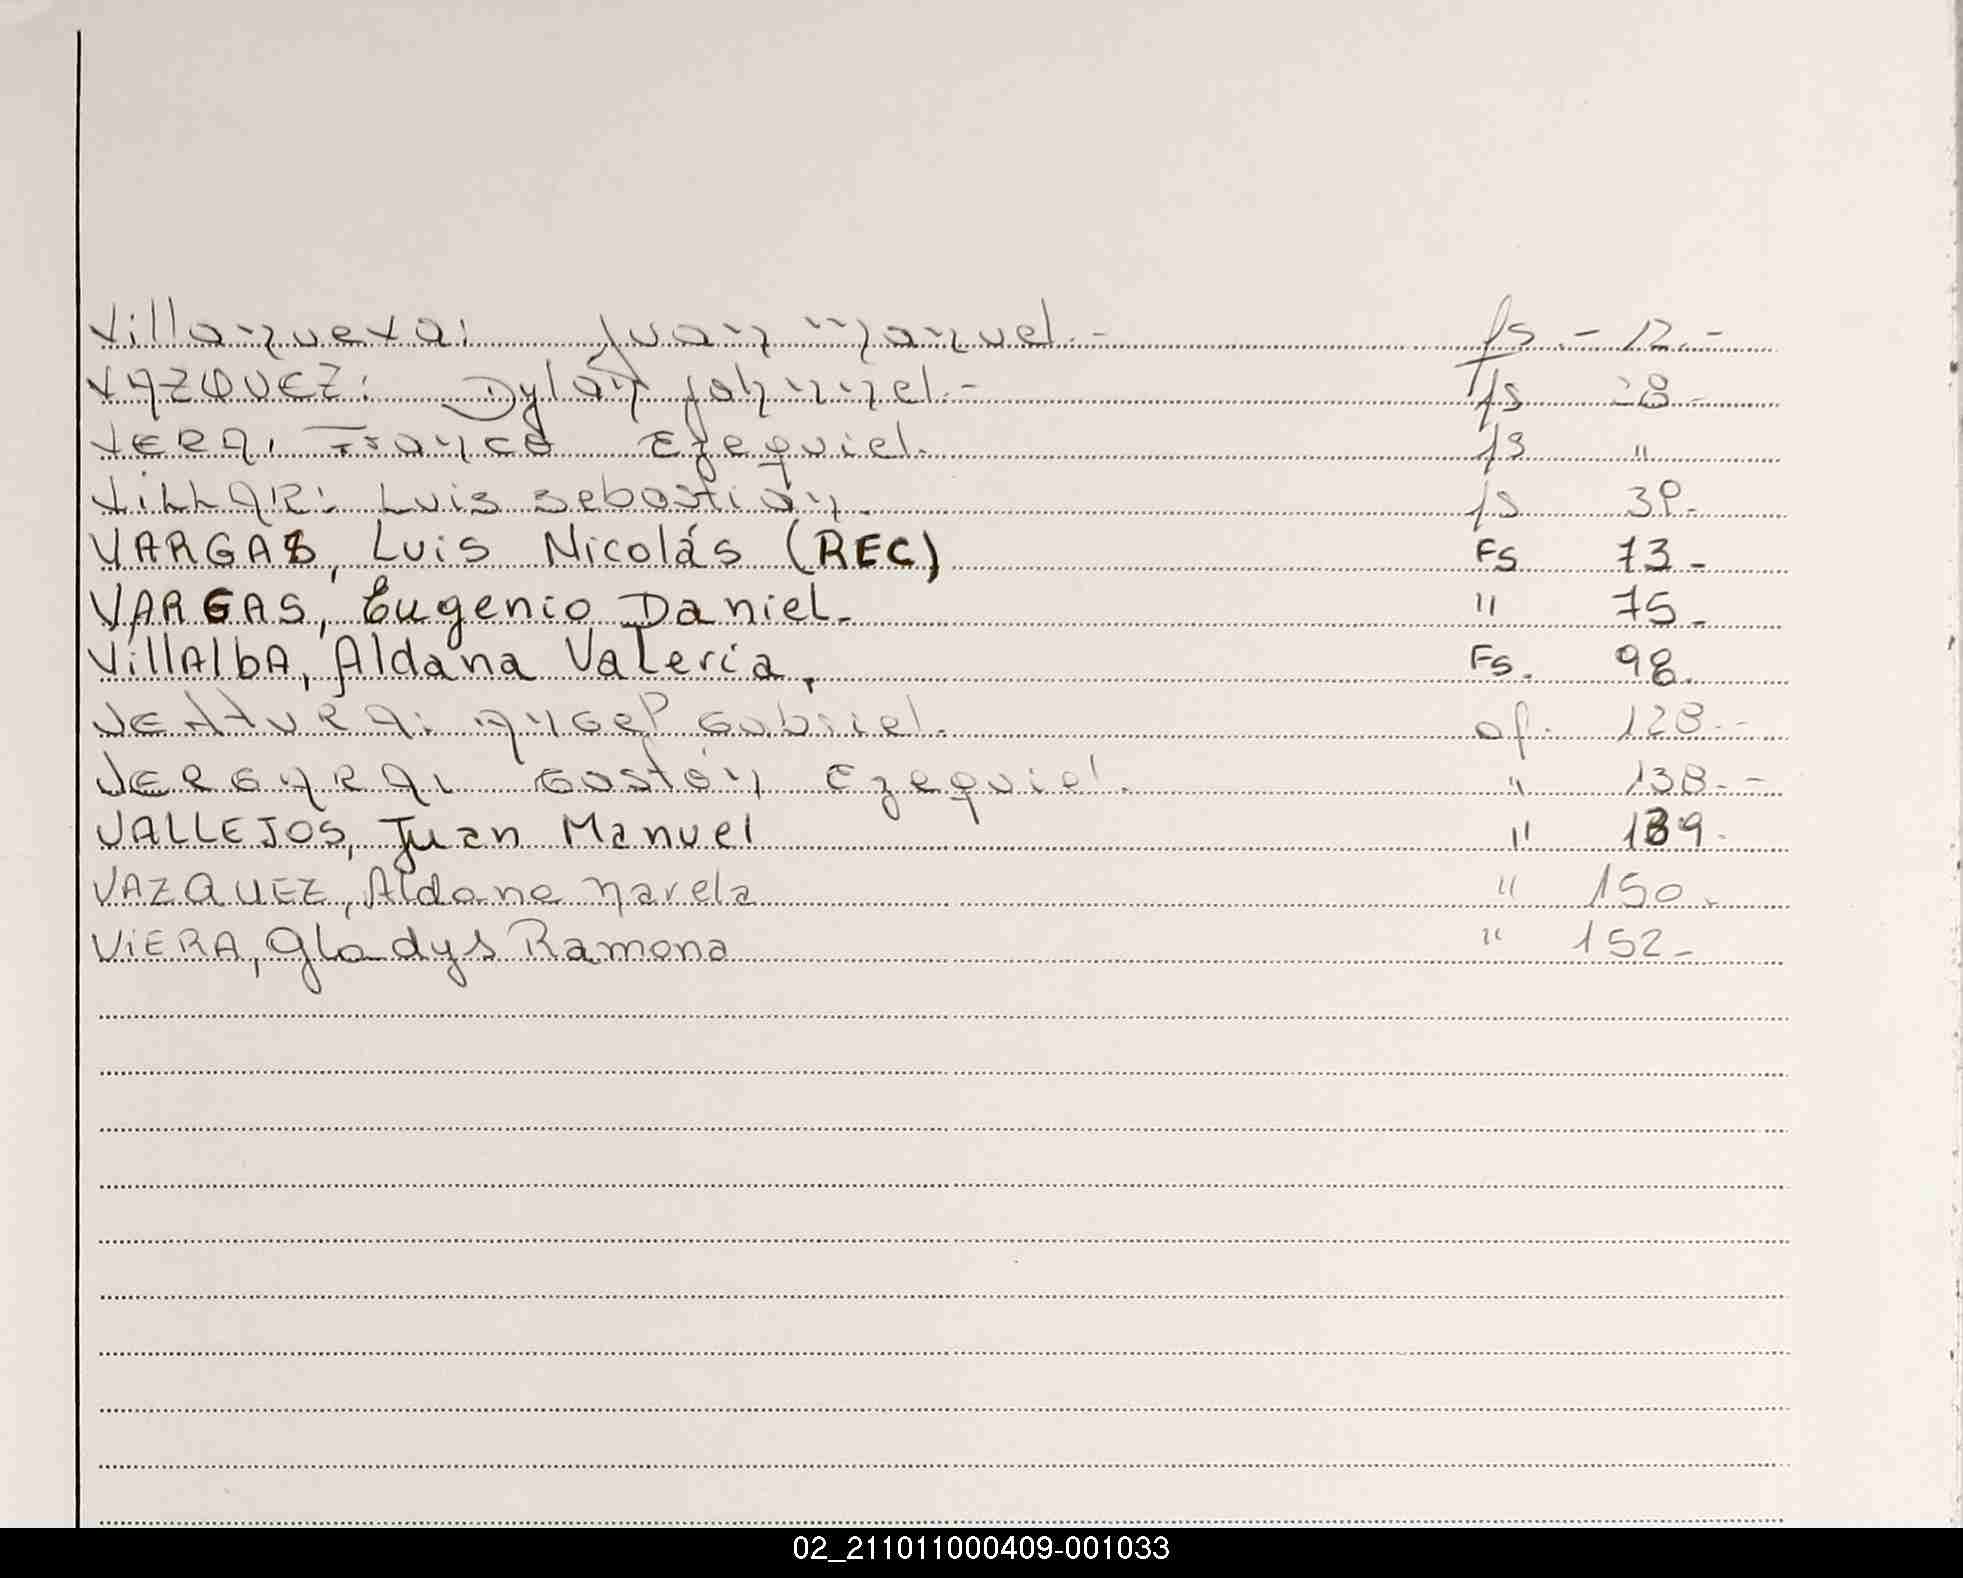 Villanueva: Juan Manuel.- fs.- 12.-
VAZQUEZ: Dylan Johnniel.- fs 28.-
VERA: Franco Ezequiel. fs "
VILLAR: Luis Sebastian. fs 39.-
VARGAS, Luis Nicolás (REC) Fs 73-
VARGAS, Eugenio Daniel- " 75-
VillAlbA, Aldana Valeria, Fs. 98.
VENTURA: Angel Gabriel. of. 128.-
VERGARA: Gastón Ezequiel. " 138.-
VALLEJOS, Juan Manuel " 139.
VAZQUEZ, Aldana Marela " 150.
ViERA, Gladys Ramona " 152-
02_211011000409-001033